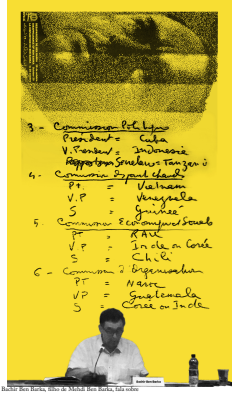 3 - Commission Politique
President = Cuba
V. President = Indonesia
Rapporteur Secretaire = Tanzanie
4 -
Pt. = Vietnam
V.P = Venezuela
S = Guinée
5 Commission Economique et Sociale
PT = RAU
V P = Inde ou Corée
S = Chili
6 - Commission d'Organisation
PT = Maroc
VP = Guatemala
S = Corée ou Inde
Bachir Ben Barka
Bachir Ben Barka, filho de Mehdi Ben Barka, fala sobre